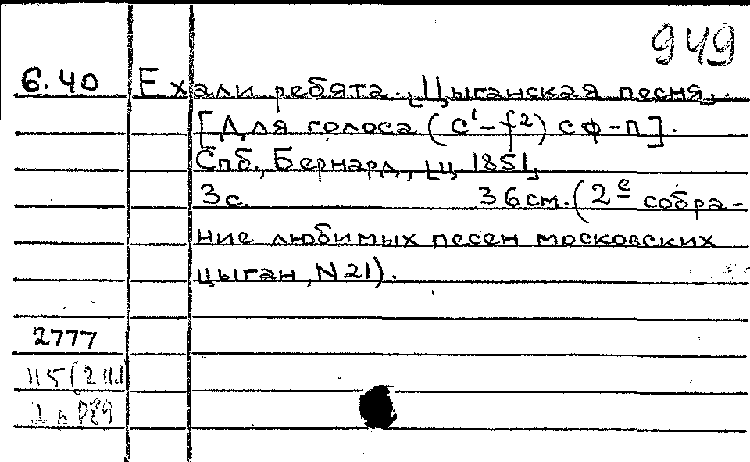 949
6.40 Ехали ребята. Цыганская песня.
[Для голоса (c¹-f²) с ф-п].
Спб., Бернард, [ц. 1851]
3с. 36см. (2е собра-
ние любимых песен московских
цыган, N 21).
2777
115(2